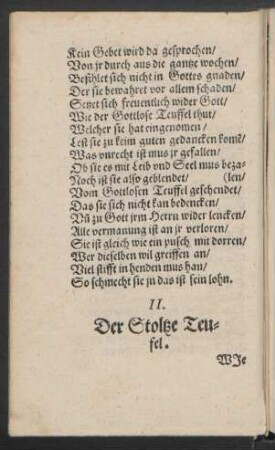 Kein Gebet wird da gesprochen/
Von jr durch aus die gantze wochen/
Befihlet sich nicht in Gottes gnaden/
Der sie bewahret vor allem schaden/
Setzet sich freuentlich wider Gott/
Wie der Gottlose Teuffel thut/
Welcher sie hat eingenomen/
Lest sie zu keim guten gedancken kom̃/
Was vnrecht ist mus jr gefallen/
Ob sie es mit Leib vnd Seel mus beza-
Noch ist sie also geblendet/ (len/
Vom Gottlosen Teuffel geschendet/
Das sie sich nicht kan bedencken/
Vñ zu Gott jrm Herrn wider lencken/
Alle vermanung ist an jr verloren/
Sie ist gleich wie ein pusch mit dorren/
Wer dieselben wil greiffen an/
Viel stifft in henden mus han/
So schmecht sie zu das ist sein lohn.
II.
Der Stoltze Teu-
fel.
WJe